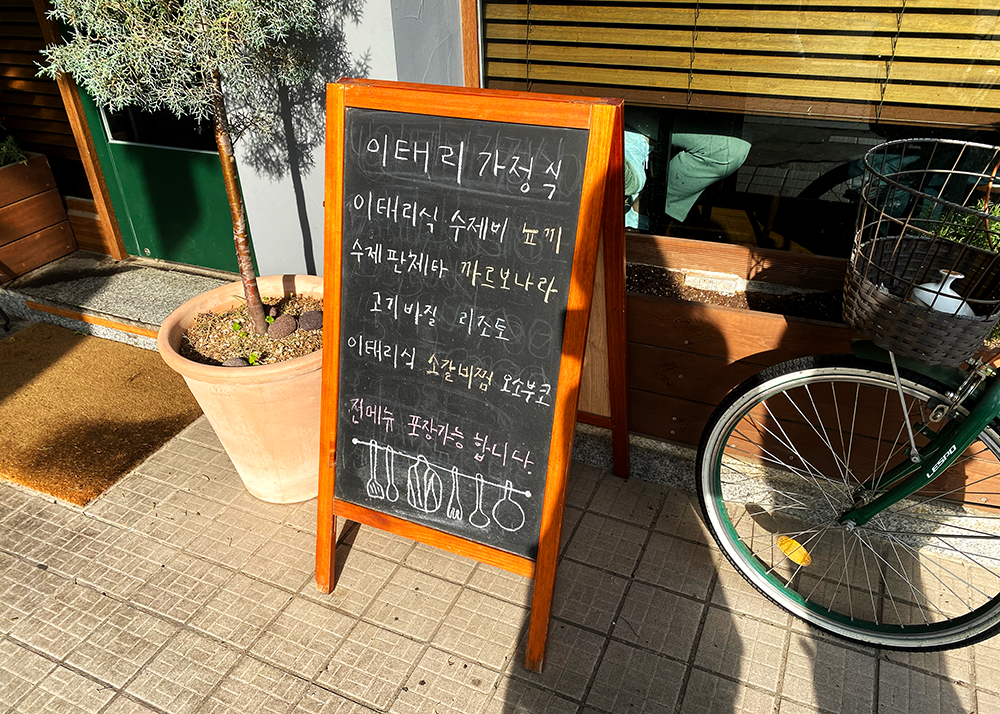 이태리 가정식
이태리식 수제비 뇨끼
수제 판제타 까르보나라
고기비질 리조또
이태리식 소갈비찜 오소부코
전메뉴 포장가능 합니다.
LESPO